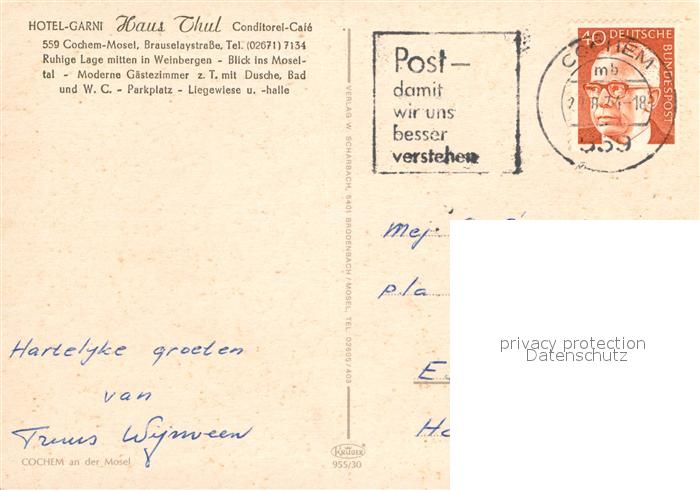 HOTEL-GARNI Haus Thul Conditorei-Café
559 Cochem-Mosel, Brauselaystraße, Tel. (02671) 7134
Ruhige Lage mitten in Weinbergen - Blick ins Mosel-
tal - Moderne Gästezimmer z. T. mit Dusche, Bad
und W. C. - Parkplatz - Liegewiese u. -halle
Post-
damit
wir uns
besser
verstehen
40 DEUTSCHE
BUNDESPOST
COCHEM
mb
559
VERLAG W. SCHARBACH, 5401 BRODENBACH / MOSEL, TEL. 02605 / 403
Mej.
pla
privacy protection
Datenschutz
Hartelyke groeten
van
Truus Wijnveen
COCHEM an der Mosel
KRÜGER
955/30